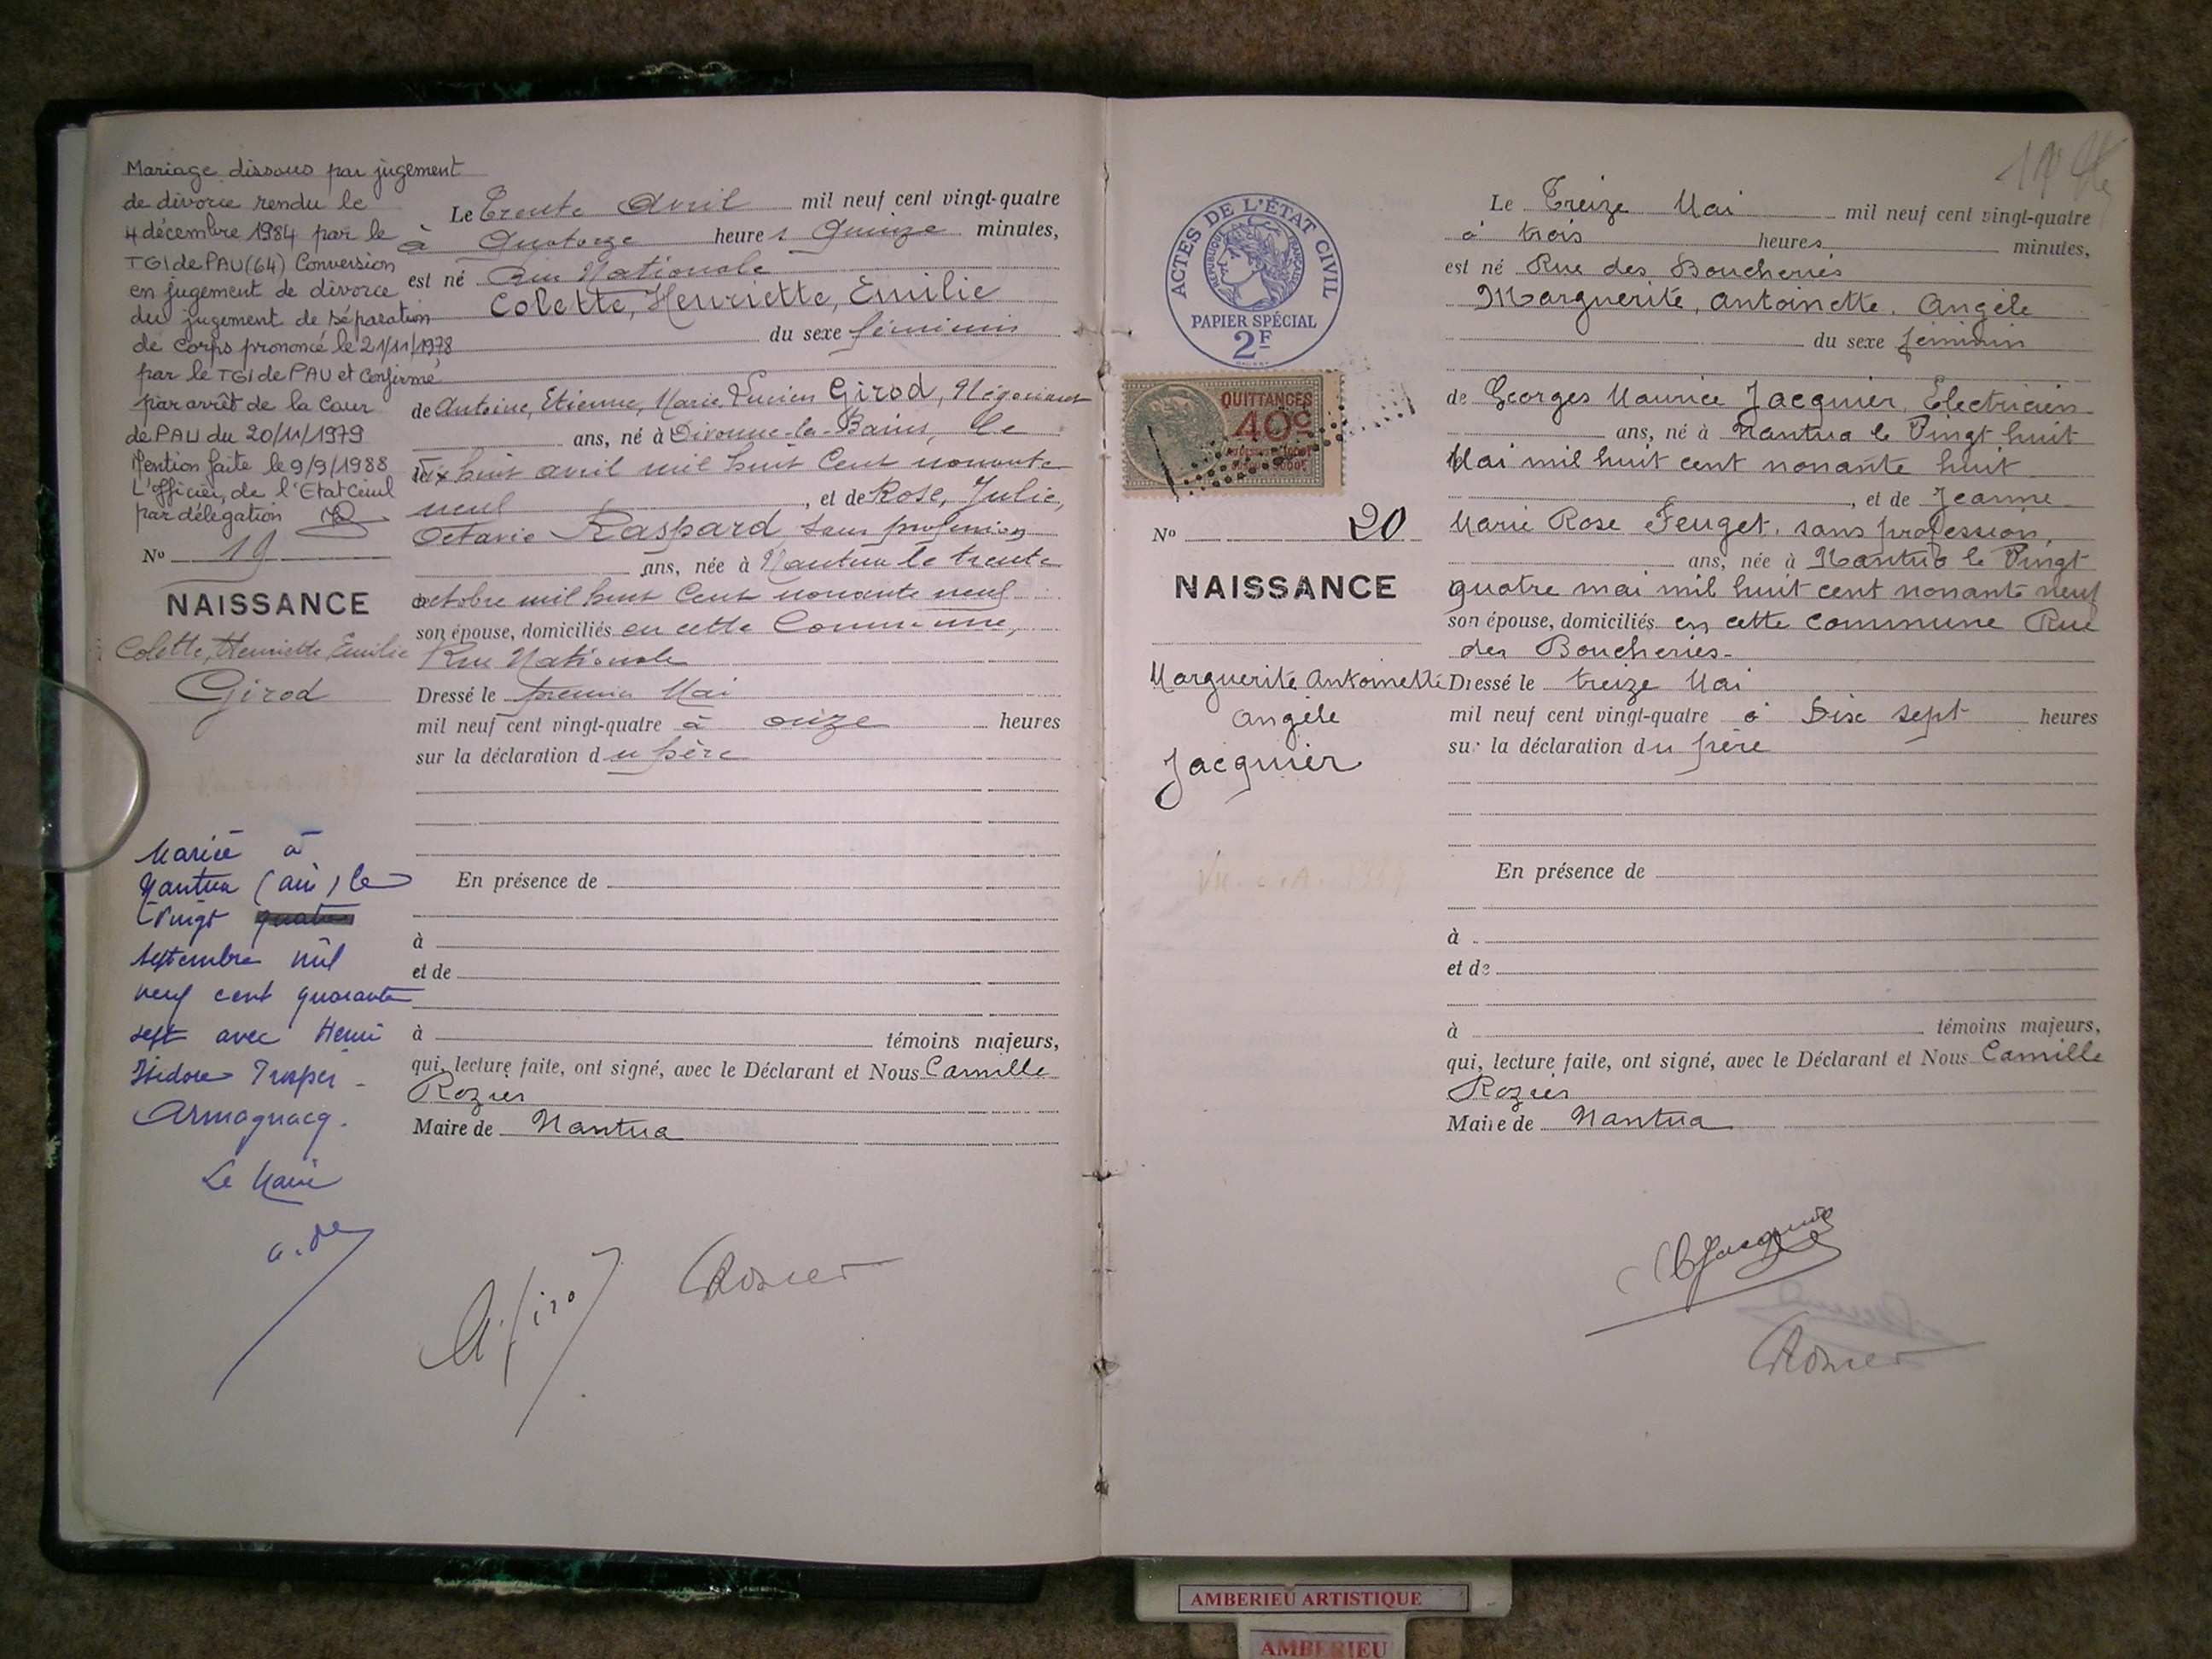 Mariage dissous par jugement
de divorce rendu le
4 décembre 1984 par le
TGI de PAU (64) Conversion
en jugement de divorce
du jugement de séparation
de corps prononcé le 21/11/1978
par le TGI de PAU et confirmé
par arrêt de la Cour
de PAU du 20/11/1979
Mention faite le 9/9/1988
L'officier de l'Etat Civil
par délégation
No 19
NAISSANCE
Colette, Henriette, Emilie
Girod
Mariée à
Nantua (ain) le
vingt
septembre mil
neuf cent quarante
sept avec Henri
Isidore Prosper
Armagnacq.
Le Maire
Le Trente Avril mil neuf cent vingt-quatre
à Quatorze heures Quinze minutes,
est né Rue Nationale
Colette, Henriette, Emilie
du sexe féminin
de Antoine, Etienne, Marie, Lucien Girod, Négociant
ans, né à Divonne-les-Bains, le
dix huit avril mil huit cent nonante
neuf, et de Rose, Julie,
Octavie Raspard sans profession
ans, née à Nantua le trente
octobre mil huit cent nonante neuf
son épouse, domiciliés en cette Commune,
Rue Nationale
Dressé le premier Mai
mil neuf cent vingt-quatre à onze heures
sur la déclaration du père
En présence de
à
et de
à témoins majeurs,
qui, lecture faite, ont signé, avec le Déclarant et Nous Camille
Rozier
Maire de Nantua
A. Girod
Rozier
ACTES DE L'ÉTAT CIVIL
RÉPUBLIQUE FRANÇAISE
PAPIER SPÉCIAL
2F
QUITTANCES
40c
No 20
NAISSANCE
Marguerite Antoinette
Angèle
Jacquier
Le Treize Mai mil neuf cent vingt-quatre
à trois heures minutes,
est né Rue des Boucheries
Marguerite, Antoinette, Angèle
du sexe féminin
de Georges Maurice Jacquier, Electricien
ans, né à Nantua le Vingt huit
Mai mil huit cent nonante huit
, et de Jeanne
Marie Rose Feuget, sans profession,
ans, née à Nantua le Vingt
quatre mai mil huit cent nonante neuf
son épouse, domiciliés en cette commune Rue
des Boucheries-
Dressé le treize Mai
mil neuf cent vingt-quatre à Dix sept heures
sur la déclaration du père
En présence de
à
et de
à témoins majeurs,
qui, lecture faite, ont signé, avec le Déclarant et Nous Camille
Rozier
Maire de Nantua
Jacquier
Rozier
AMBERIEU ARTISTIQUE
AMBERIEU